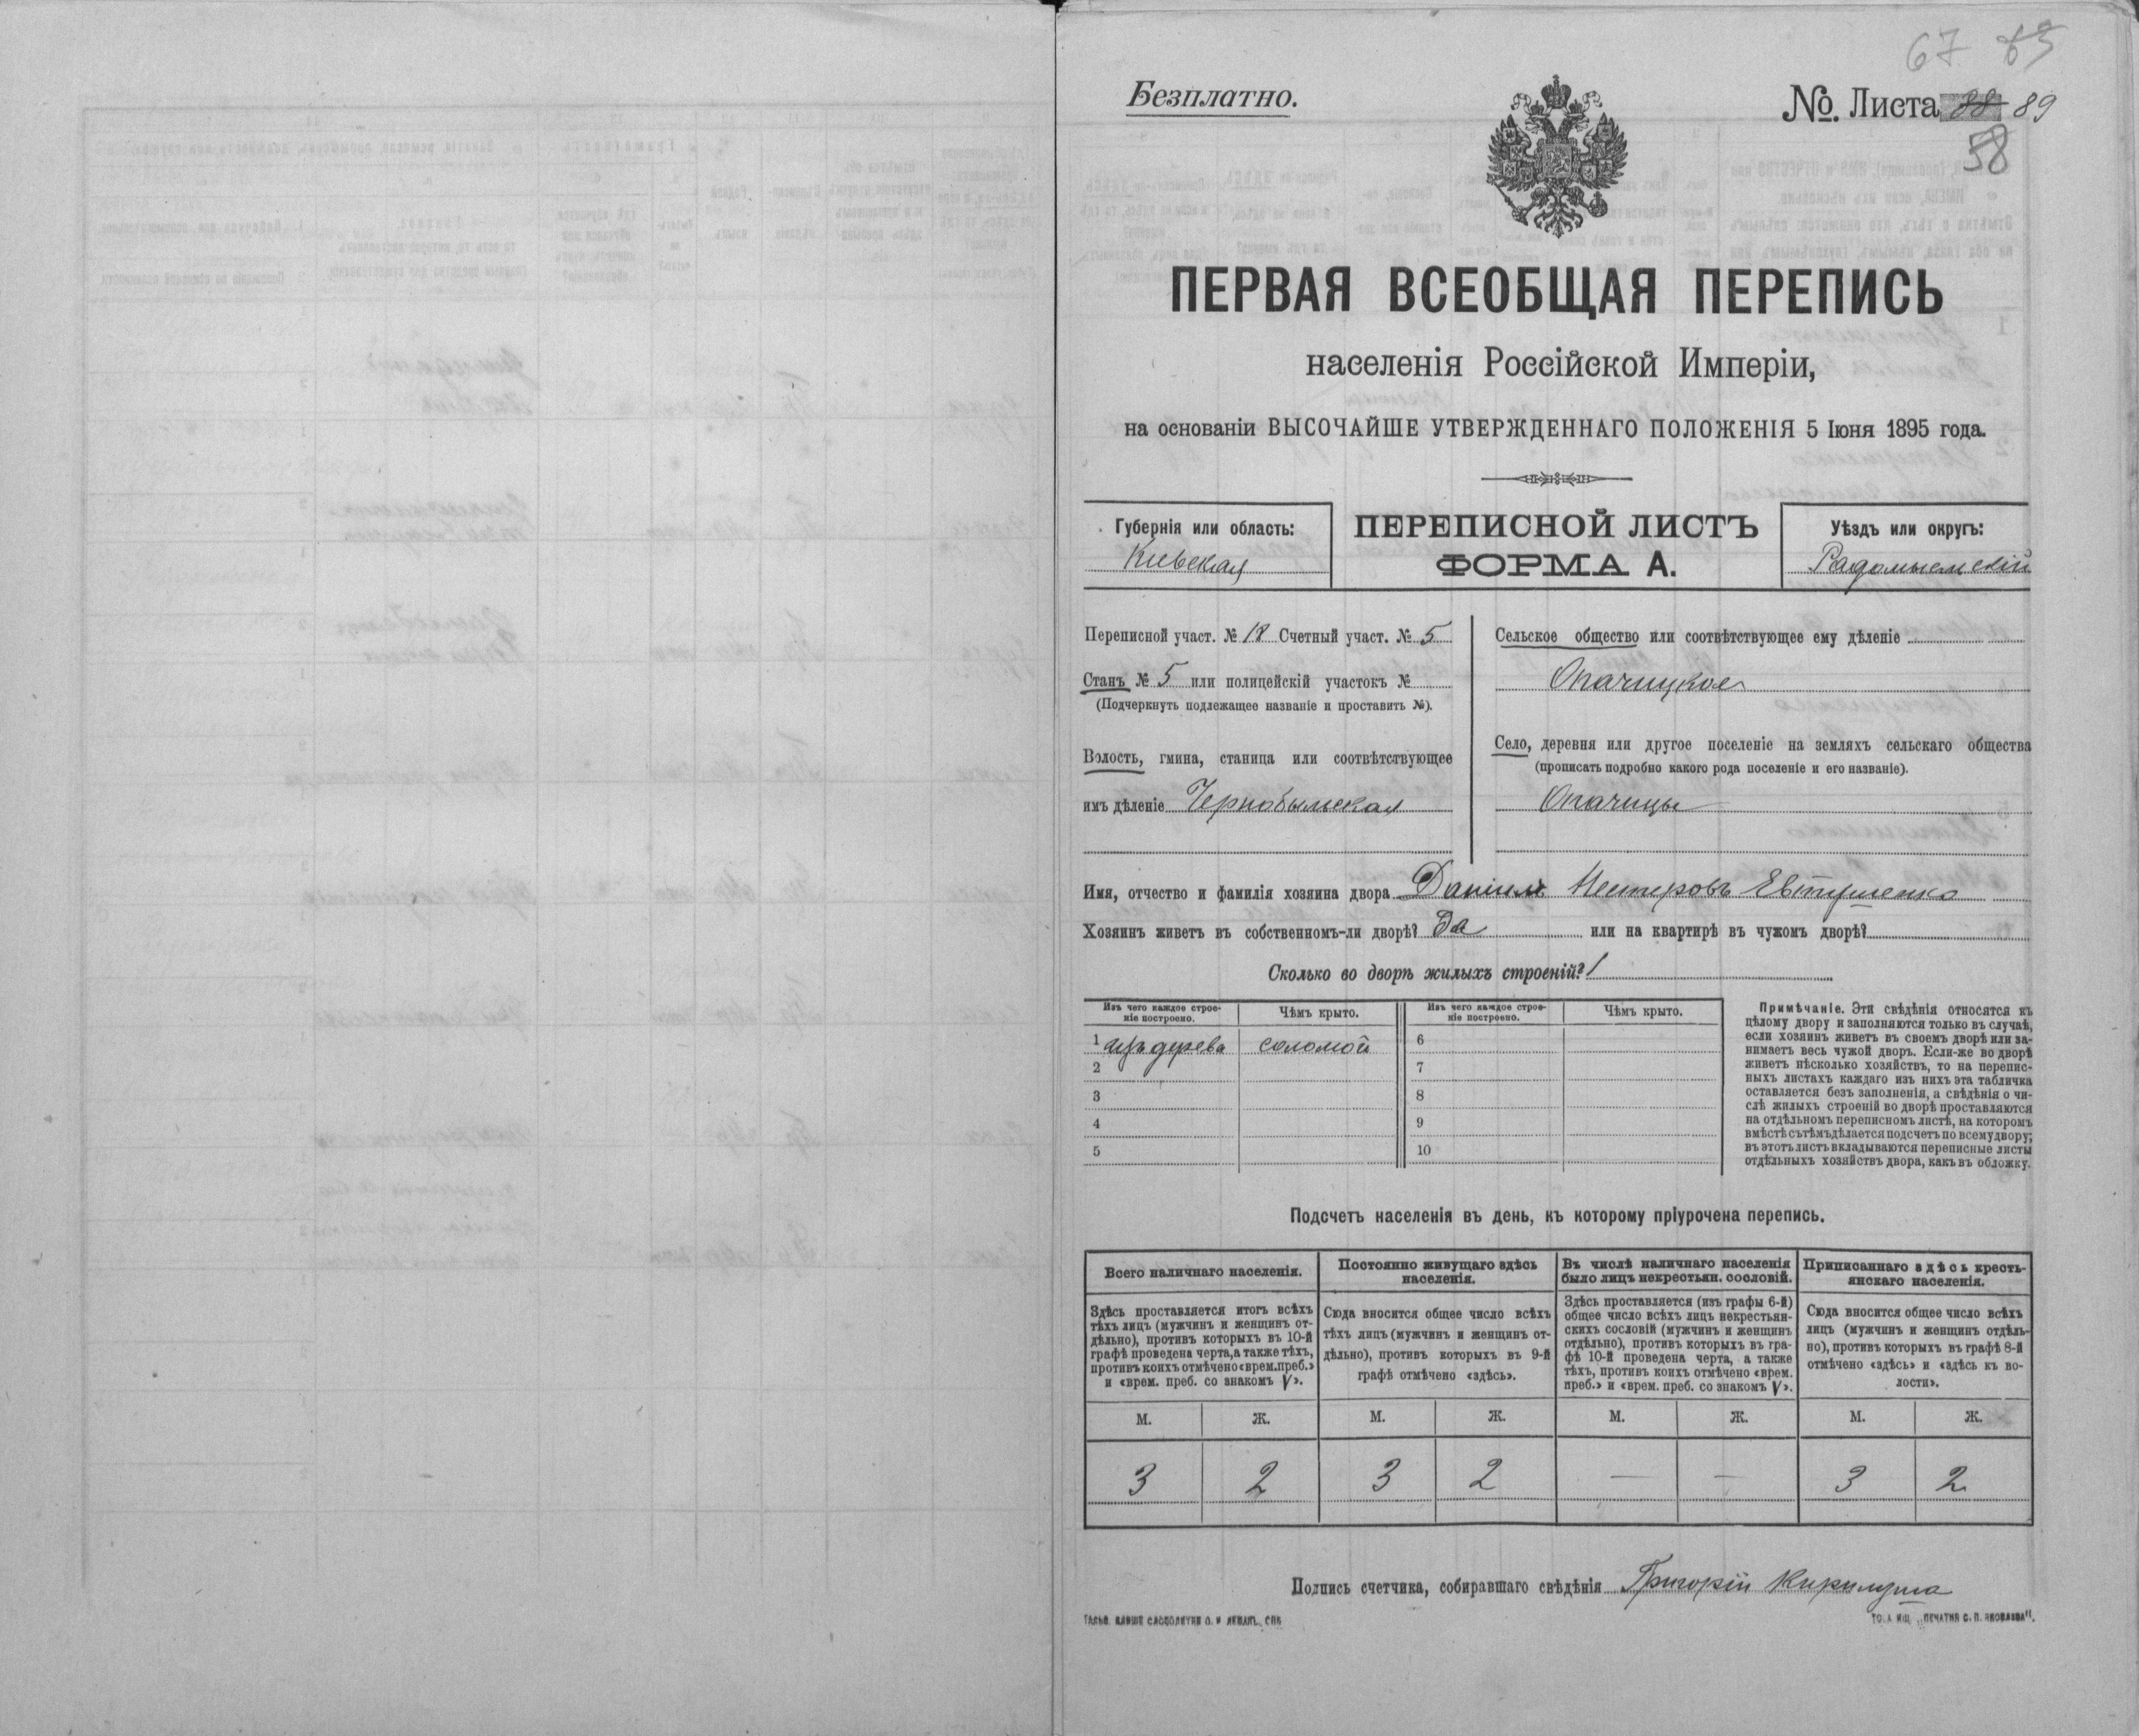 67 63
Безплатно.
№. Листа 88 89
58
ПЕРВАЯ ВСЕОБЩАЯ ПЕРЕПИСЬ
населенія Россійской Имперіи,
на основаніи ВЫСОЧАЙШЕ УТВЕРЖДЕННАГО ПОЛОЖЕНІЯ 5 Іюня 1895 года.
Губернія или область:
Кіевская
ПЕРЕПИСНОЙ ЛИСТЪ
ФОРМА А.
Уѣздъ или округъ:
Радомысльскій
Переписной участ. № 18 Счетный участ. № 5
Станъ № 5 или полицейскій участокъ №
(Подчеркнуть подлежащее названіе и проставить №).
Волость, гмина, станица или соотвѣтствующее
имъ дѣленіе Чернобыльская
Сельское общество или соотвѣтствующее ему дѣленіе
Опачицкое
Село, деревня или другое поселеніе на земляхъ сельскаго общества
(прописать подробно какого рода поселеніе и его названіе).
Опачицы
Имя, отчество и фамилія хозяина двора Даніилъ Нестеровъ Евтушенко
Хозяинъ живетъ въ собственномъ-ли дворѣ? Да или на квартирѣ въ чужомъ дворѣ?
Сколько во дворѣ жилыхъ строеній? 1
Изъ чего каждое строе-
ніе построено.
Чѣмъ крыто.
Изъ чего каждое строе-
ніе построено.
Чѣмъ крыто.
1 изъ дерева соломой 6
2 7
3 8
4 9
5 10
Примѣчаніе. Эти свѣдѣнія относятся къ
цѣлому двору и заполняются только въ случаѣ,
если хозяинъ живетъ въ своемъ дворѣ или за-
нимаетъ весь чужой дворъ. Если-же во дворѣ
живетъ нѣсколько хозяйствъ, то на перепис-
ныхъ листахъ каждаго изъ нихъ эта табличка
оставляется безъ заполненія, а свѣдѣнія о чи-
слѣ жилыхъ строеній во дворѣ проставляются
на отдѣльномъ переписномъ листѣ, на которомъ
вмѣстѣ съ тѣмъ дѣлается подсчетъ по всему двору;
въ этотъ листъ вкладываются переписные листы
отдѣльныхъ хозяйствъ двора, какъ въ обложку.
Подсчетъ населенія въ день, къ которому пріурочена перепись.
Всего наличнаго населенія.
Здѣсь проставляется итогъ всѣхъ
тѣхъ лицъ (мужчинъ и женщинъ от-
дѣльно), противъ которыхъ въ 10-й
графѣ проведена черта, а также тѣхъ,
противъ коихъ отмѣчено «врем. преб.»
и «врем. преб. со знакомъ V».
Постоянно живущаго здѣсь
населенія.
Сюда вносится общее число всѣхъ
тѣхъ лицъ (мужчинъ и женщинъ от-
дѣльно), противъ которыхъ въ 9-й
графѣ отмѣчено «здѣсь».
Въ числѣ наличнаго населенія
было лицъ некрестьян. сословій.
Здѣсь проставляется (изъ графы 6-й)
общее число всѣхъ лицъ некрестьян-
скихъ сословій (мужчинъ и женщинъ
отдѣльно), противъ которыхъ въ гра-
фѣ 10-й проведена черта, а также
тѣхъ, противъ коихъ отмѣчено «врем.
преб.» и «врем. преб. со знакомъ V».
Приписаннаго здѣсь кресть-
янскаго населенія.
Сюда вносится общее число всѣхъ
лицъ (мужчинъ и женщинъ отдѣль-
но), противъ которыхъ въ графѣ 8-й
отмѣчено «здѣсь» и «здѣсь къ во-
лости».
М. Ж. М. Ж. М. Ж. М. Ж.
3 2 3 2 — — 3 2
Подпись счетчика, собиравшаго свѣдѣнія Григорій